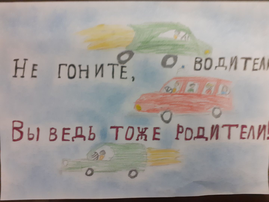 Не гоните, водители
Вы ведь тоже родители!